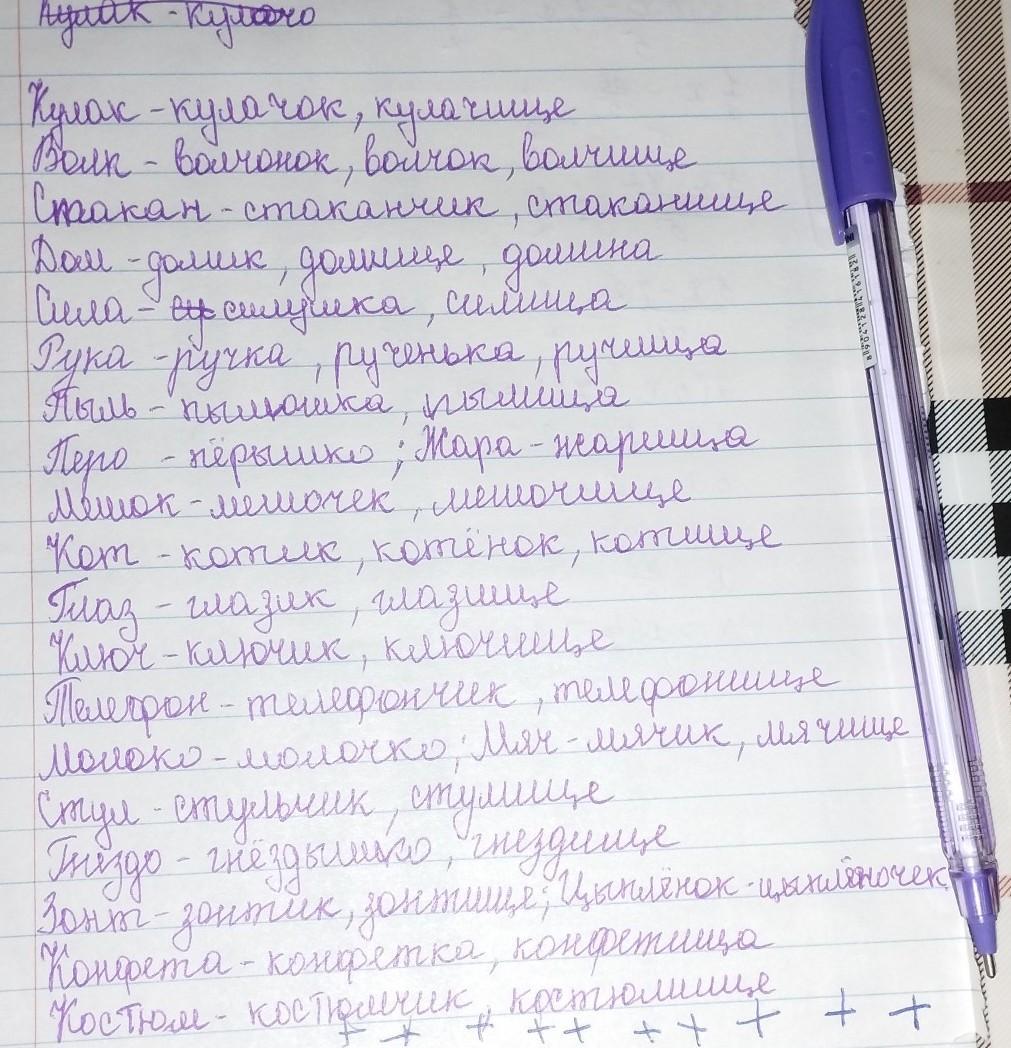 Кулак - кулачо
Кулак - кулачок, кулачище
Волк - волчонок, волчок, волчище
Стакан - стаканчик, стаканище
Дом - домик, домище, домина
Сила - силушка, силища
Рука - ручка, рученька, ручища
Пыль - пылюшка, пылища
Перо - пёрышко; Жара - жарища
Мешок - мешочек, мешочище
Кот - котик, котёнок, котище
Глаз - глазик, глазище
Ключ - ключик, ключище
Телефон - телефончик, телефонище
Молоко - молочко; Мяч - мячик, мячище
Стул - стульчик, стулище
Гнездо - гнёздышко, гнездище
Зонт - зонтик, зонтище; Цыплёнок - цыплёночек
Конфета - конфетка, конфетища
Костюм - костюмчик, костюмище
+ + + + + + + + + +